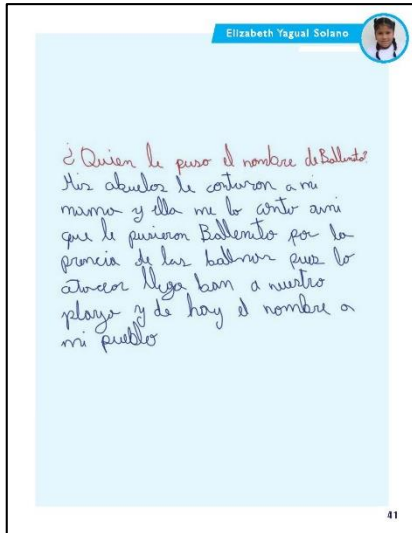 Elizabeth Yagual Solano
¿Quien le puso el nombre de Ballenito?
Mis abuelos le contaron a mi
mama y ella me lo conto ami
que le pusieron Ballenito por la
prencia de las ballnas pues lo
llega ban a nuestro
playa y de hay el nombre a
mi pueblo
41